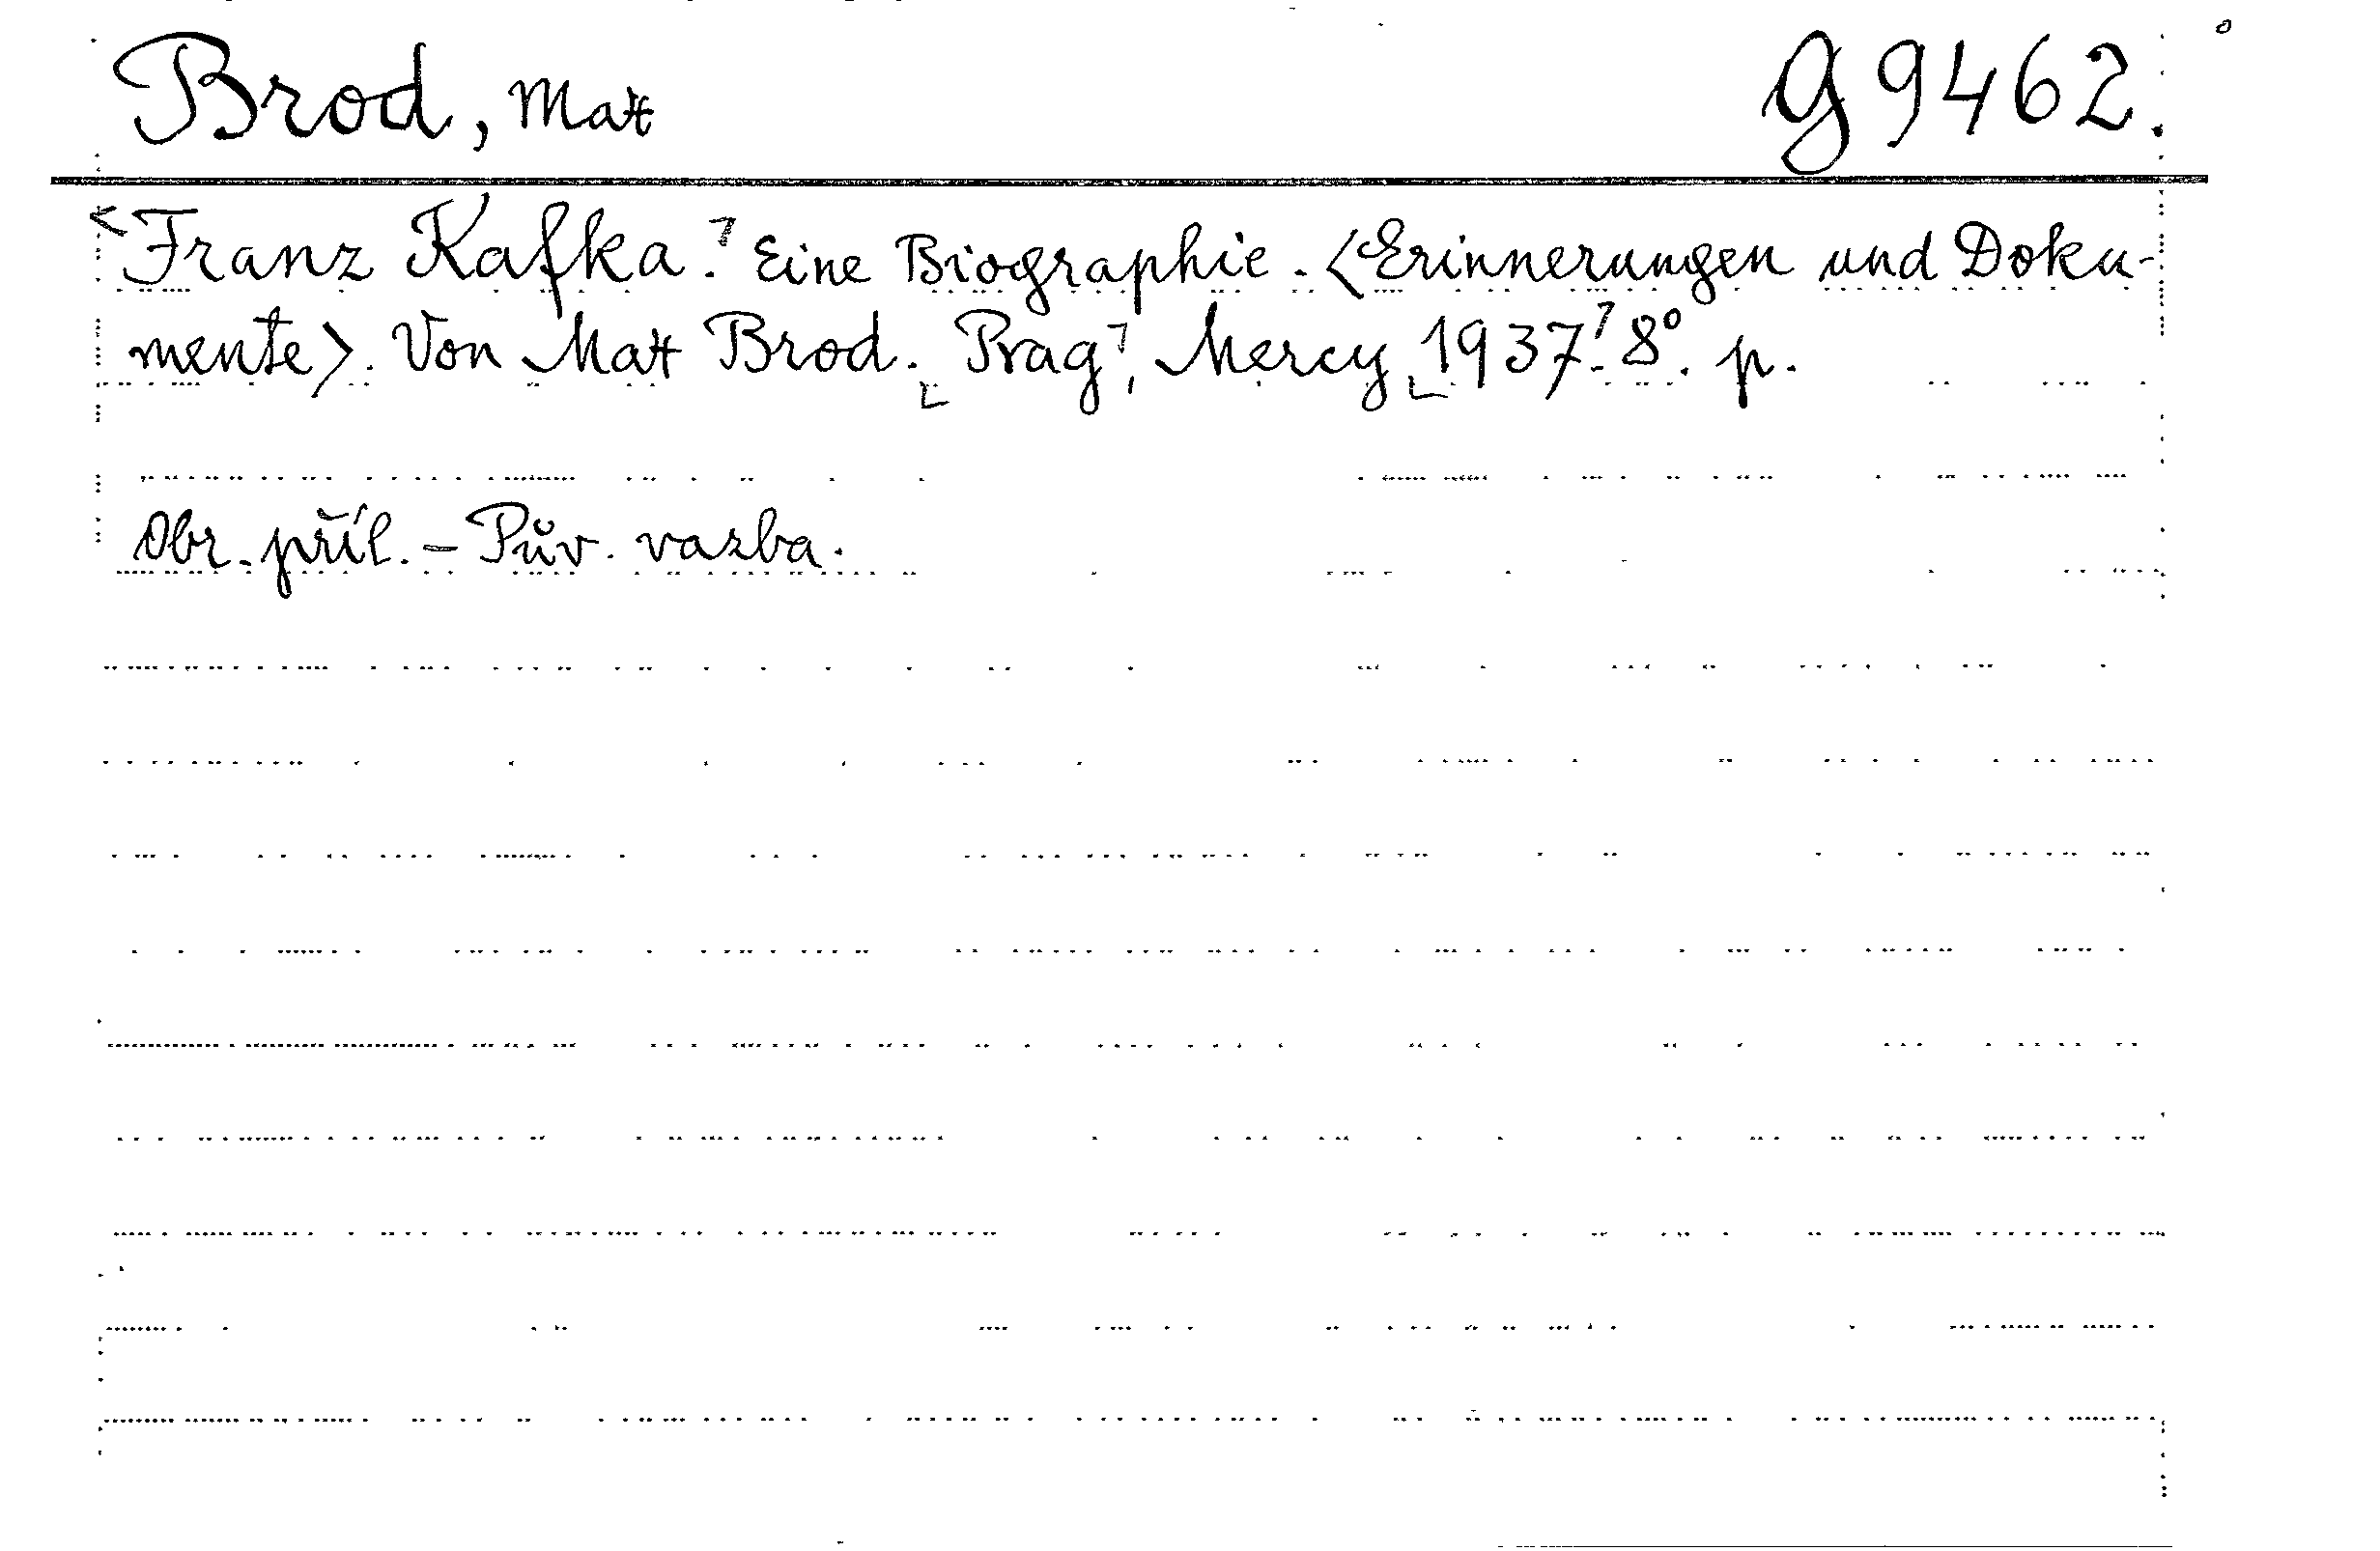 Brod, Max G 9462.
<Franz Kafka.⌝ Eine Biographie. <Erinnerungen und Doku-
mente>. Von Max Brod. ⌞Prag⌝, Mercy ⌞1937⌝. 8°. p.
Obr. příl. – Pův. vazba.